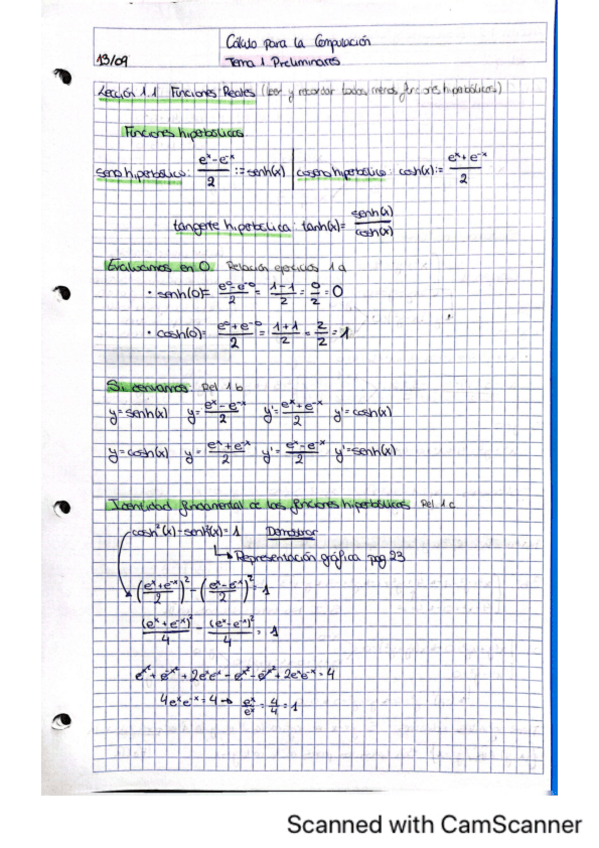 Cálculo para la Computación
13/09 Tema 1 Preliminares
Lección 1.1 Funciones Reales (leer y recordar todas menos funciones hiperbólicas)
Funciones hiperbólicas
seno hiperbólico: (e^x - e^-x)/2 := senh(x) | coseno hiperbólico: cosh(x) := (e^x + e^-x)/2
tangente hiperbólica: tanh(x) = senh(x)/cosh(x)
Evaluamos en 0. Relación ejercicios 1a
· senh(0) = (e^0 - e^-0)/2 = (1-1)/2 = 0/2 = 0
· cosh(0) = (e^0 + e^-0)/2 = (1+1)/2 = 2/2 = 1
Si derivamos: Rel 1b
y = senh(x) y = (e^x - e^-x)/2 y' = (e^x + e^-x)/2 y' = cosh(x)
y = cosh(x) y = (e^x + e^-x)/2 y' = (e^x - e^-x)/2 y' = senh(x)
Identidad fundamental de las funciones hiperbólicas Rel. 1c
cosh²(x) - senh²(x) = 1 Demostrar
↳ Representación gráfica pag 23
((e^x + e^-x)/2)² - ((e^x - e^-x)/2)² = 1
(e^x + e^-x)²/4 - (e^x - e^-x)²/4 = 1
e^x² + e^-x² + 2e^x e^-x - e^x² - e^-x² + 2e^x e^-x = 4
4e^x e^-x = 4 → e^x/e^x = 4/4 = 1
Scanned with CamScanner